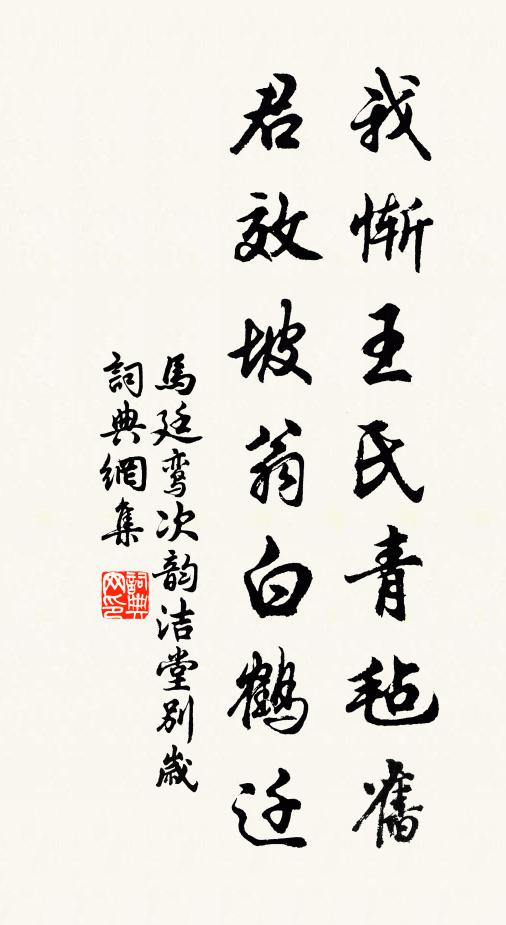 我慚王氏青毡舊
君效坡翁白鶴迁
馬廷鸾次韵洁堂別歲
詞典網集
詞典
网印